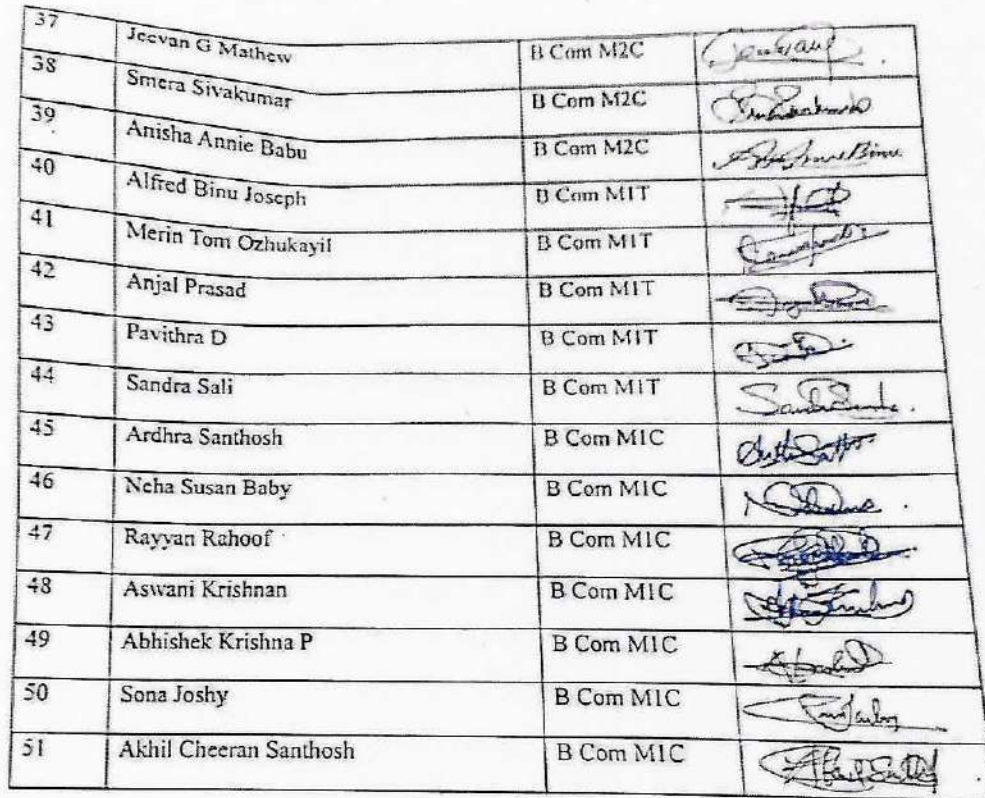 37 Jeevan G Mathew B Com M2C
38 Smera Sivakumar B Com M2C
39 Anisha Annie Babu B Com M2C
40 Alfred Binu Joseph B Com M1T
41 Merin Tom Ozhukayil B Com M1T
42 Anjal Prasad B Com M1T
43 Pavithra D B Com M1T
44 Sandra Sali B Com M1T
45 Ardhra Santhosh B Com M1C
46 Neha Susan Baby B Com M1C
47 Rayyan Rahoof B Com M1C
48 Aswani Krishnan B Com M1C
49 Abhishek Krishna P B Com M1C
50 Sona Joshy B Com M1C
51 Akhil Cheeran Santhosh B Com M1C